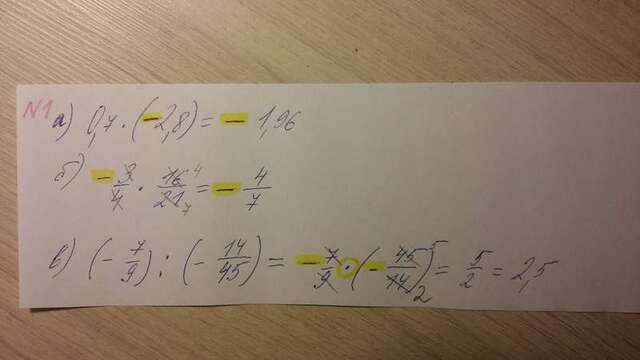 N1
а) 0,7 · (-2,8) = - 1,96
б) - 3/4 · 16/21 4 7 = - 4/7
в) (- 7/9) : (- 14/45) = - 7/9 · (- 45/14) 5 2 = 5/2 = 2,5